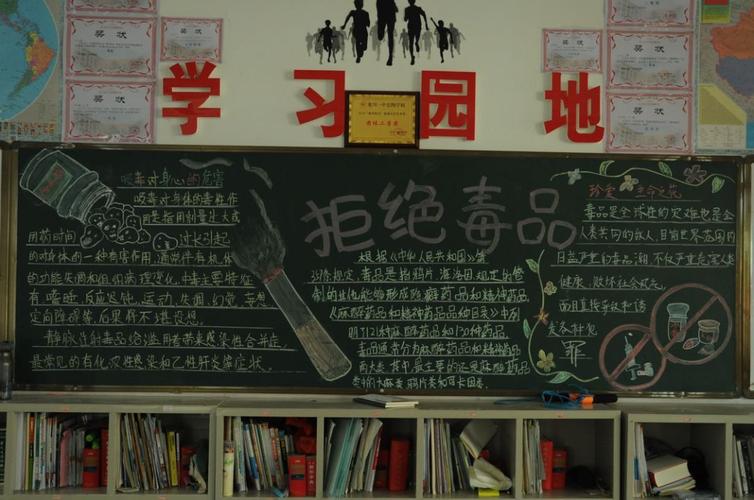 奖状
奖状
奖状
学习园地
拒绝毒品
吸毒对身心的危害
吸毒对身体的毒性作
用是指用剂量过大或
用药时间
过长引起
的对身体的一种有害作用,通常伴有机体
的功能失调和组织病理变化。中毒主要特征
有:嗜睡、反应迟钝、运动失调、幻觉、妄想、
定向障碍等,后果将不堪设想。
静脉注射毒品给滥用者带来感染性合并症,
最常见的有化浓性感染和乙性肝炎等症状。
根据《中华人民共和国》第
条规定,毒品是指鸦片、海洛因
制的其他能够形成瘾癖药品和精神药品,
《麻醉药品和精神药品品种目录》中列
明了121种麻醉药品和130种药品,
毒品通常分为麻醉药品和精神药品
两大类,其中最主要的还是麻醉药品
类中的大麻类、鸦片类和可卡因类。
珍爱 生命之花
毒品是全球性的灾难也是全
人类共同的敌人,目前世界范围内
日益严重的毒品潮,不仅严重危害人类
健康、败坏社会风气,
而且直接导致和诱
发各种犯
罪